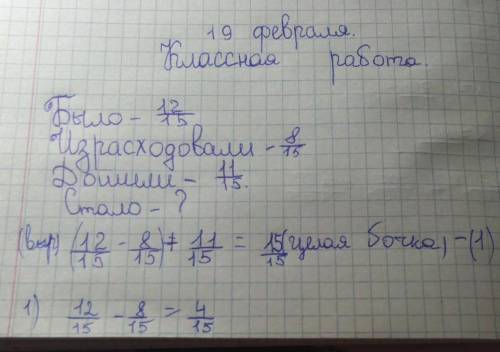 19 февраля.
Классная работа.
Было - 12/15
Израсходовали - 8/15
Долили - 11/15.
Стало - ?
(выр) (12/15 - 8/15) + 11/15 = 15/15 (целая бочка) - (1)
1) 12/15 - 8/15 = 4/15